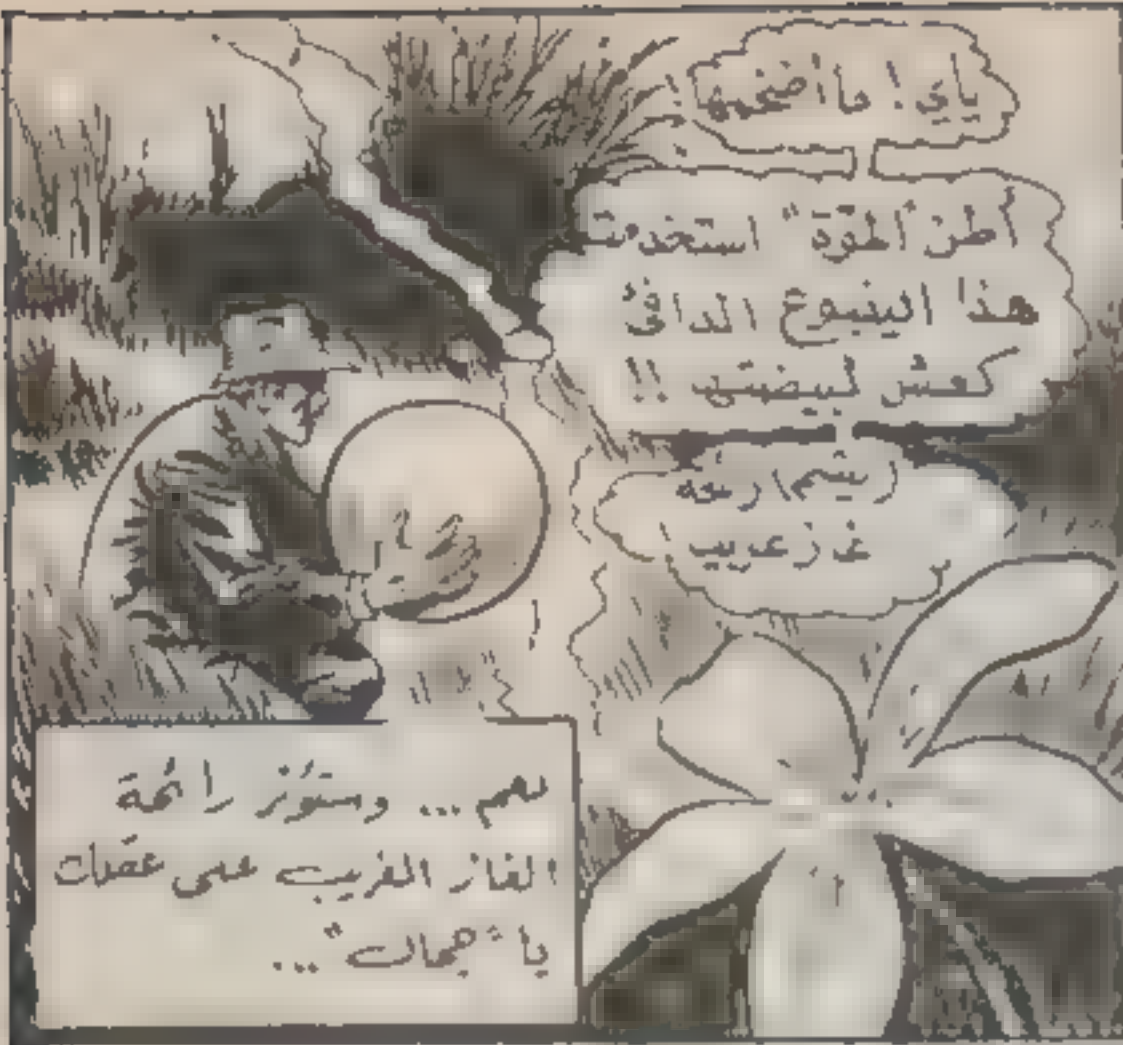 ياي! ما أضخمها!
أظن "القوة" استخدمت
هذا الينبوع الدافئ
كعش لبيضتها !!
(يشم رائحة
غاز غريب
نعم ... وستؤثر رائحة
الغاز الغريب على عقلك
يا "جمال" ...